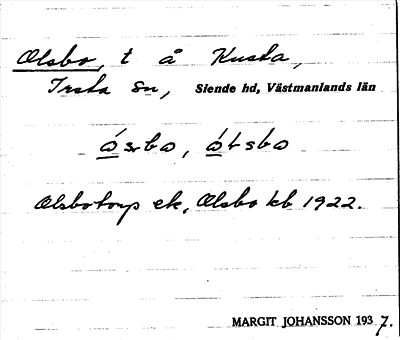 Olsbo, t å Kusta,
Irsta Sn, Siende hd, Västmanlands län
ósrbo, ótsbo
Olsbotorp ek, Olsbo kb 1922.
MARGIT JOHANSSON 1937.